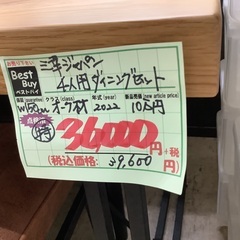 Best
Buy
ベストバイ
4人用ダイニングセット
クラス(class) 年式(year) 新品価格(new article price)
W150cm オーク材 2022 10万円
36,000円+税
(税込価格: 39,600 円)